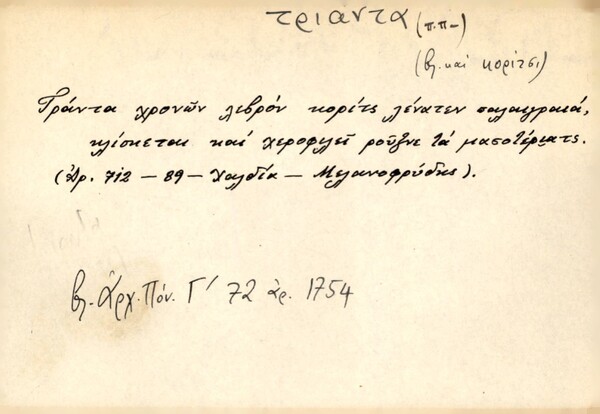 τριάντα (π.π-)
(βλ. καὶ κορίτσι)
Τράντα χρονῶν λεβρόν κορίτς λένατεν παλαιγραιά,
κλίσκεται καί χεροφιλεῖ ροῦξνε τά μαστάρια͜τς.
(Ἀρ. 712 – 89 – Χαλδία – Μελανοφρύδης).
βλ. Ἀρχ. Πόν. Γ' 72 ἀρ. 1754